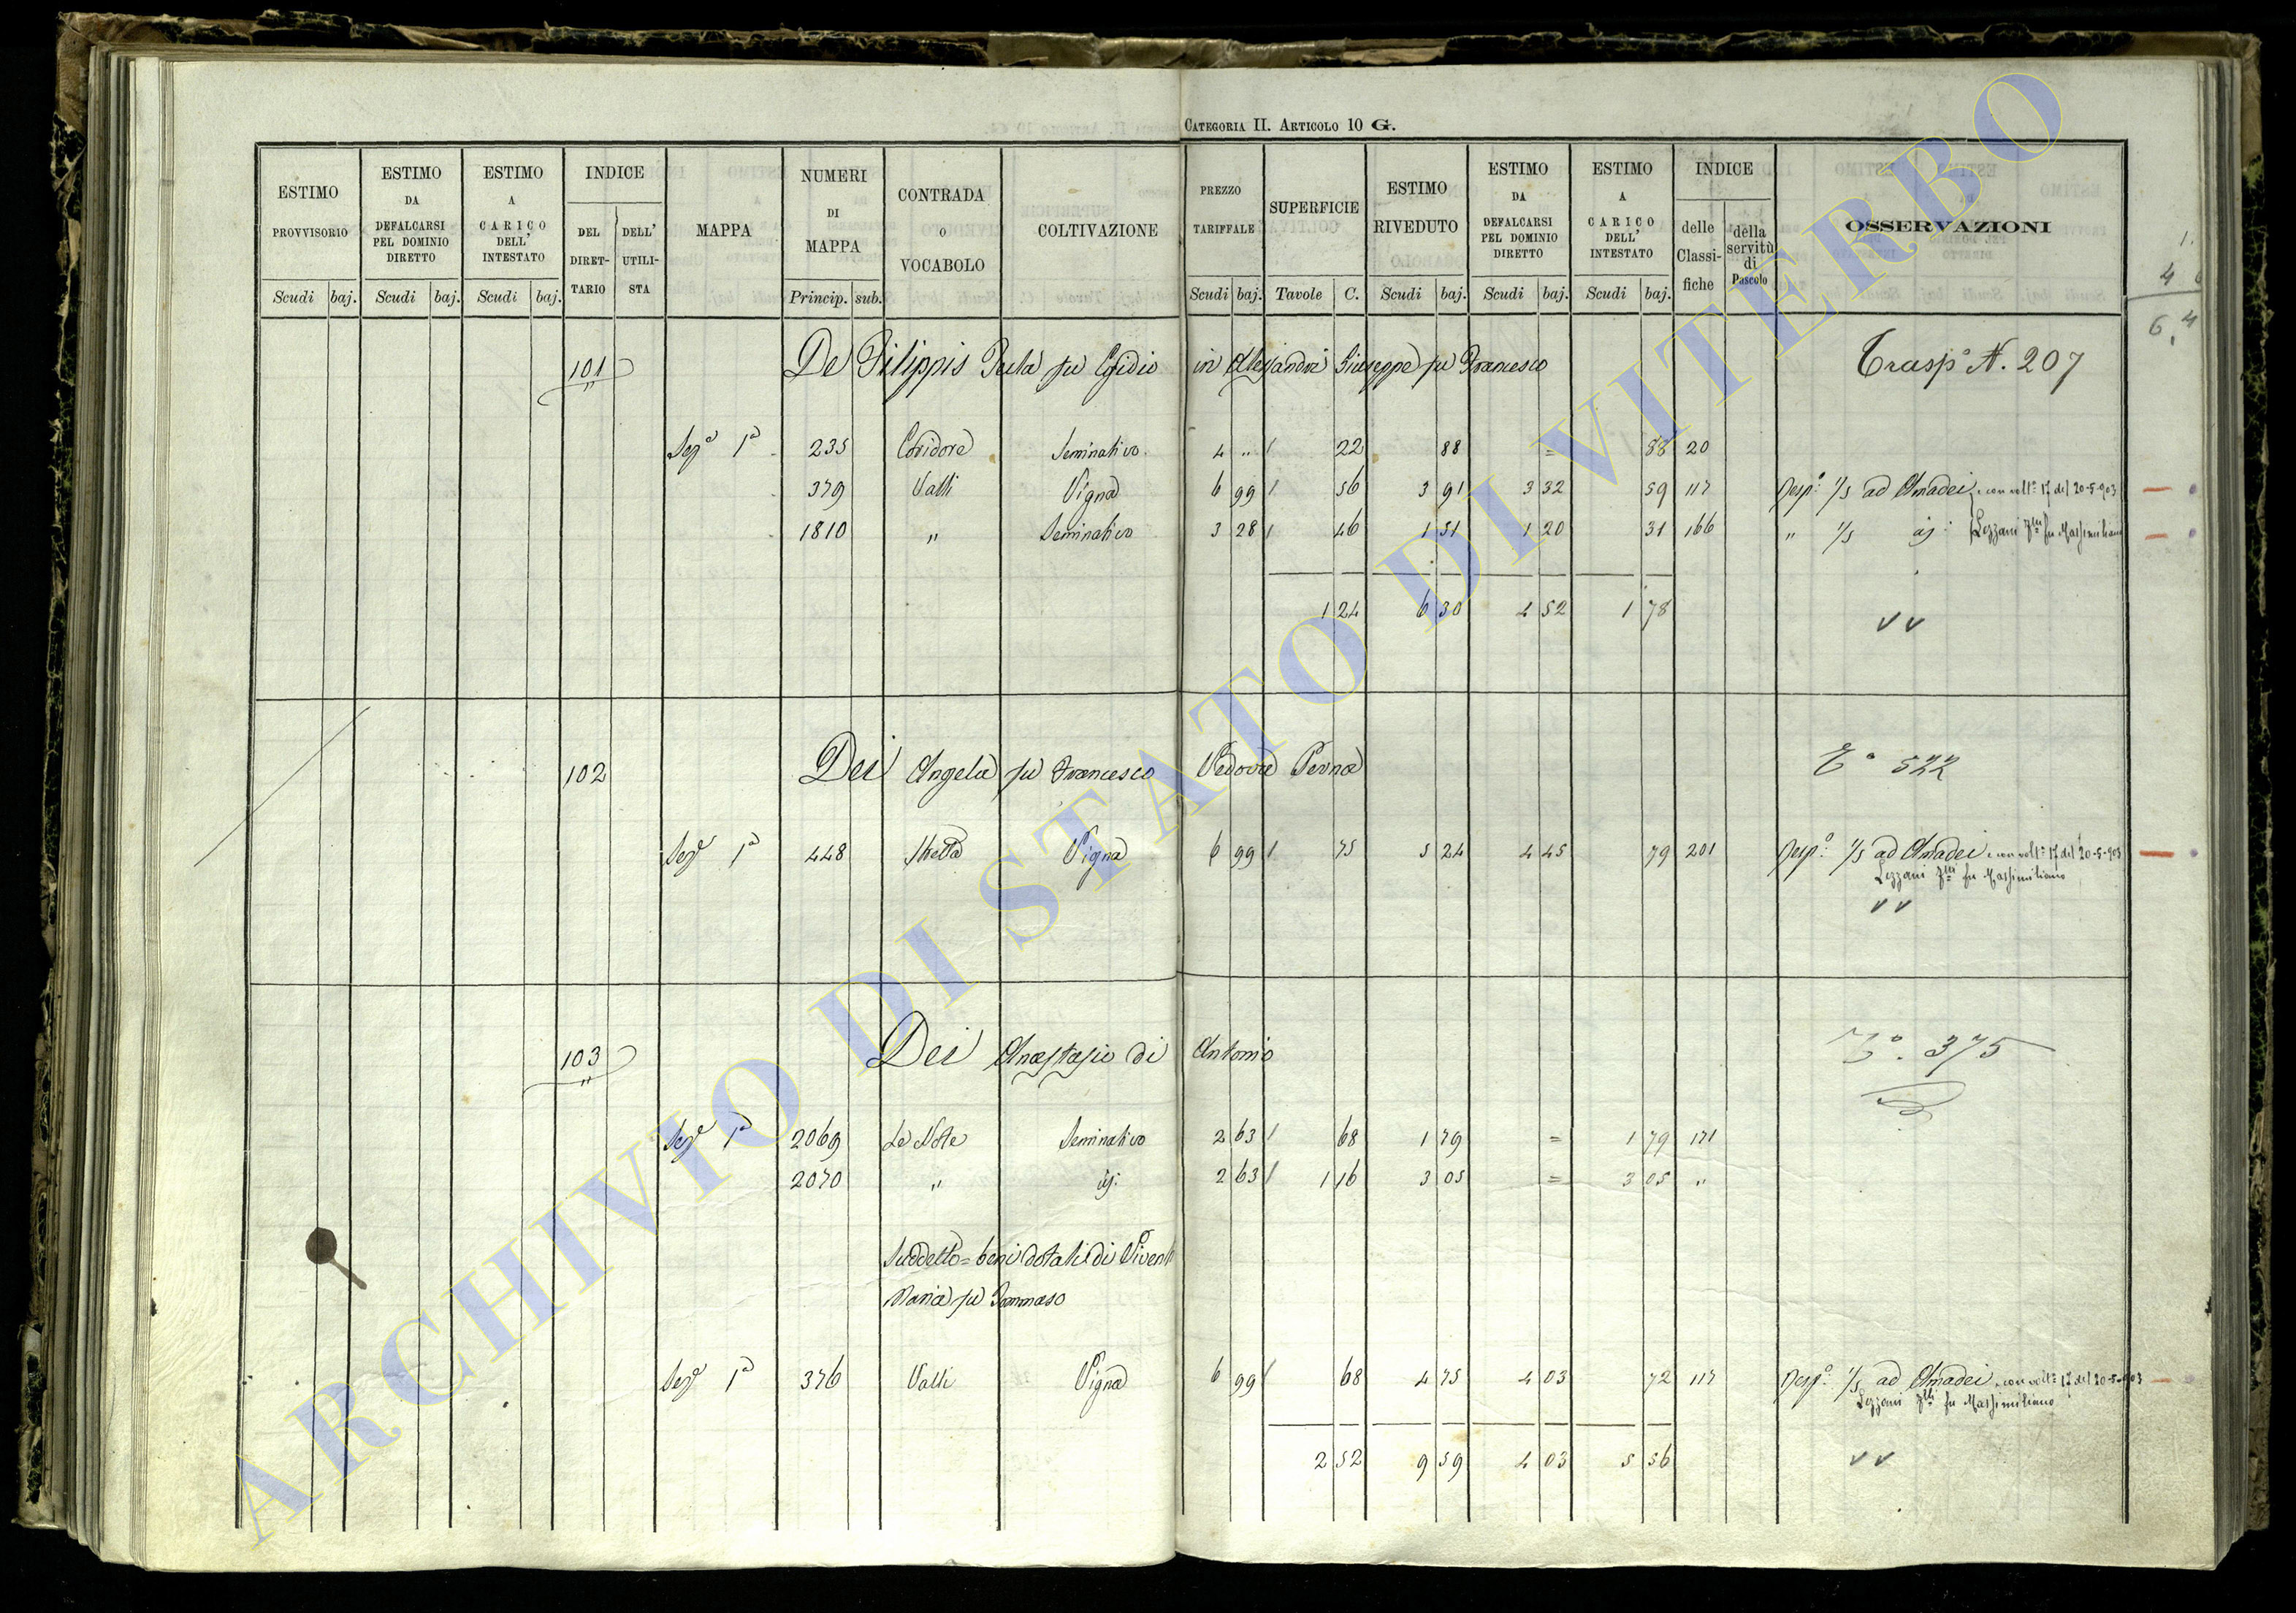 CATEGORIA II. ARTICOLO 10 G.
ESTIMO PROVVISORIO Scudi baj.
ESTIMO DA DEFALCARSI PEL DOMINIO DIRETTO Scudi baj.
ESTIMO A CARICO DELL' INTESTATO Scudi baj.
INDICE DEL DIRET-TARIO DELL' UTILI-STA
MAPPA
NUMERI DI MAPPA Princip. sub.
CONTRADA O VOCABOLO
COLTIVAZIONE
PREZZO TARIFFALE Scudi baj.
SUPERFICIE Tavole C.
ESTIMO RIVEDUTO Scudi baj.
ESTIMO DA DEFALCARSI PEL DOMINIO DIRETTO Scudi baj.
ESTIMO A CARICO DELL' INTESTATO Scudi baj.
INDICE delle Classi-fiche della servitù di Pascolo
OSSERVAZIONI
101 De Filippis Paola fu Egidio in Alessandri Giuseppe fu Francesco Trasp° N. 207
Sez° 1a 235 Coridore Seminativo 4 " / 22 88 = 88 20
379 Valli Vigna 6 99 / 56 3 91 3 32 59 117 Resp° 1/5 ad Amadei e con volt° 17 del 20-5-903
1810 " Seminativo 3 28 / 46 1 51 1 20 31 166 " 1/5 Lezzani flli fu Massimiliano
1 24 6 30 4 52 1 78
102 Dei Angela fu Francesco Vedova Perna T° 522
Sez° 1a 448 Vigna 6 99 / 75 5 24 4 45 79 201 Resp° 1/5 ad Amadei e con volt° 17 del 20-5-903
Lezzani flli fu Massimiliano
103 Dei Anastasio di Antonio T° 375
Sez° 1a 2069 Le Note Seminativo 2 63 / 68 1 79 = 1 79 171
2070 " id: 2 63 / 1 16 3 05 = 3 05 "
Suddetto = beni dotali di
Maria fu Tommaso
Sez° 1a 376 Valli Vigna 6 99 / 68 4 75 4 03 72 117 Resp° 1/5 ad Amadei e con volt° 17 del 20-5-903
Lezzani flli fu Massimiliano
2 52 9 59 4 03 5 56
ARCHIVIO DI STATO DI VITERBO